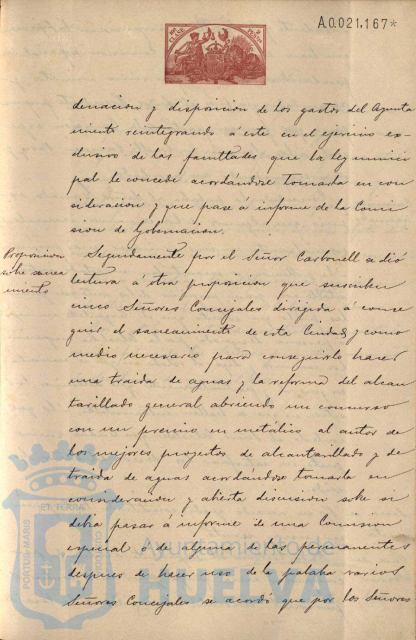 A0.021,167*
denacion y disposicion de los gastos del Ayunta
miento reintegrando á este en el ejercicio ex-
clusivo de las facultades que la ley munici
pal le concede acordándose tomarla en con
sideracion y que pase á informe de la Comi
sion de Gobernacion.
Proposicion
sobre sanea
miento
Seguidamente por el Señor Carbonell se dió
lectura á otra proposicion que suscriben
cinco Señores Concejales dirigida á conse
guir el saneamiento de esta Ciudad, y como
medio necesario para conseguirlo hacer
una traida de aguas y la reforma del alcan
tarillado general abriendo un concurso
con un premio en metálico al autor de
los mejores proyectos de alcantarillado y de
traida de aguas acordándose tomarla en
consideracion y abierta discusion sobre si
debia pasar á informe de una Comision
especial ó de alguna de las permanentes
despues de hacer uso de la palabra varios
Señores Concejales se acordó que por los Señores
PORTUS MARIS
ET TERRÆ
Ayuntamiento de
HUELVA